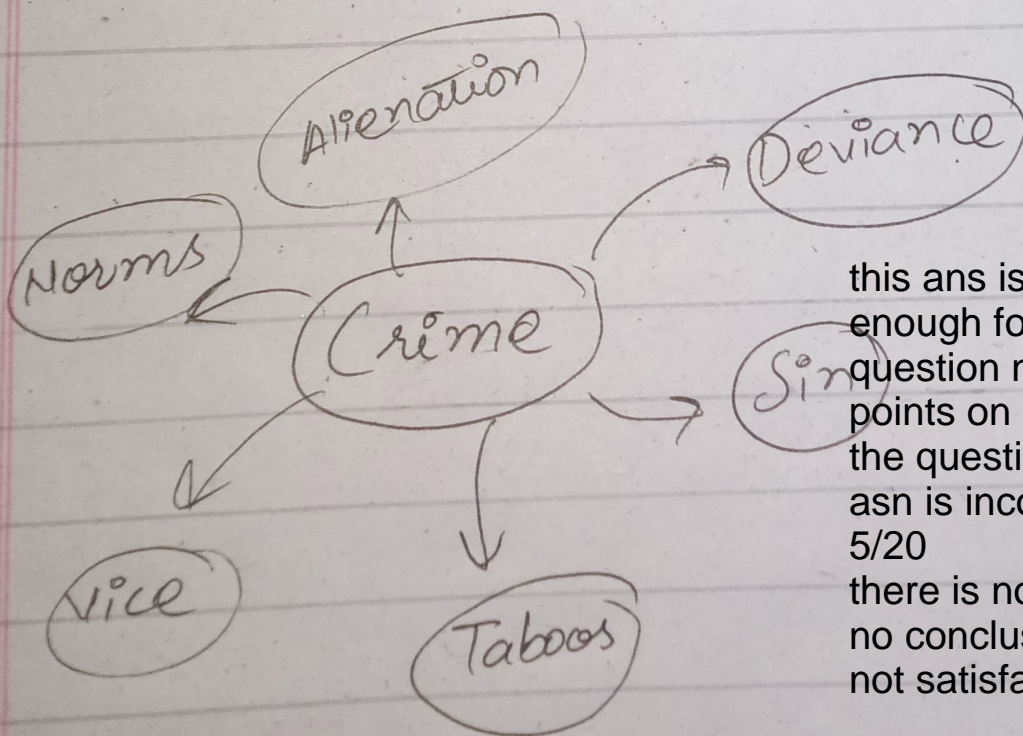 Alienation
Deviance
Norms
Crime
Sin
Vice
Taboos
this ans is
enough fo
question n
points on
the questi
asn is inco
5/20
there is no
no conclus
not satisfa